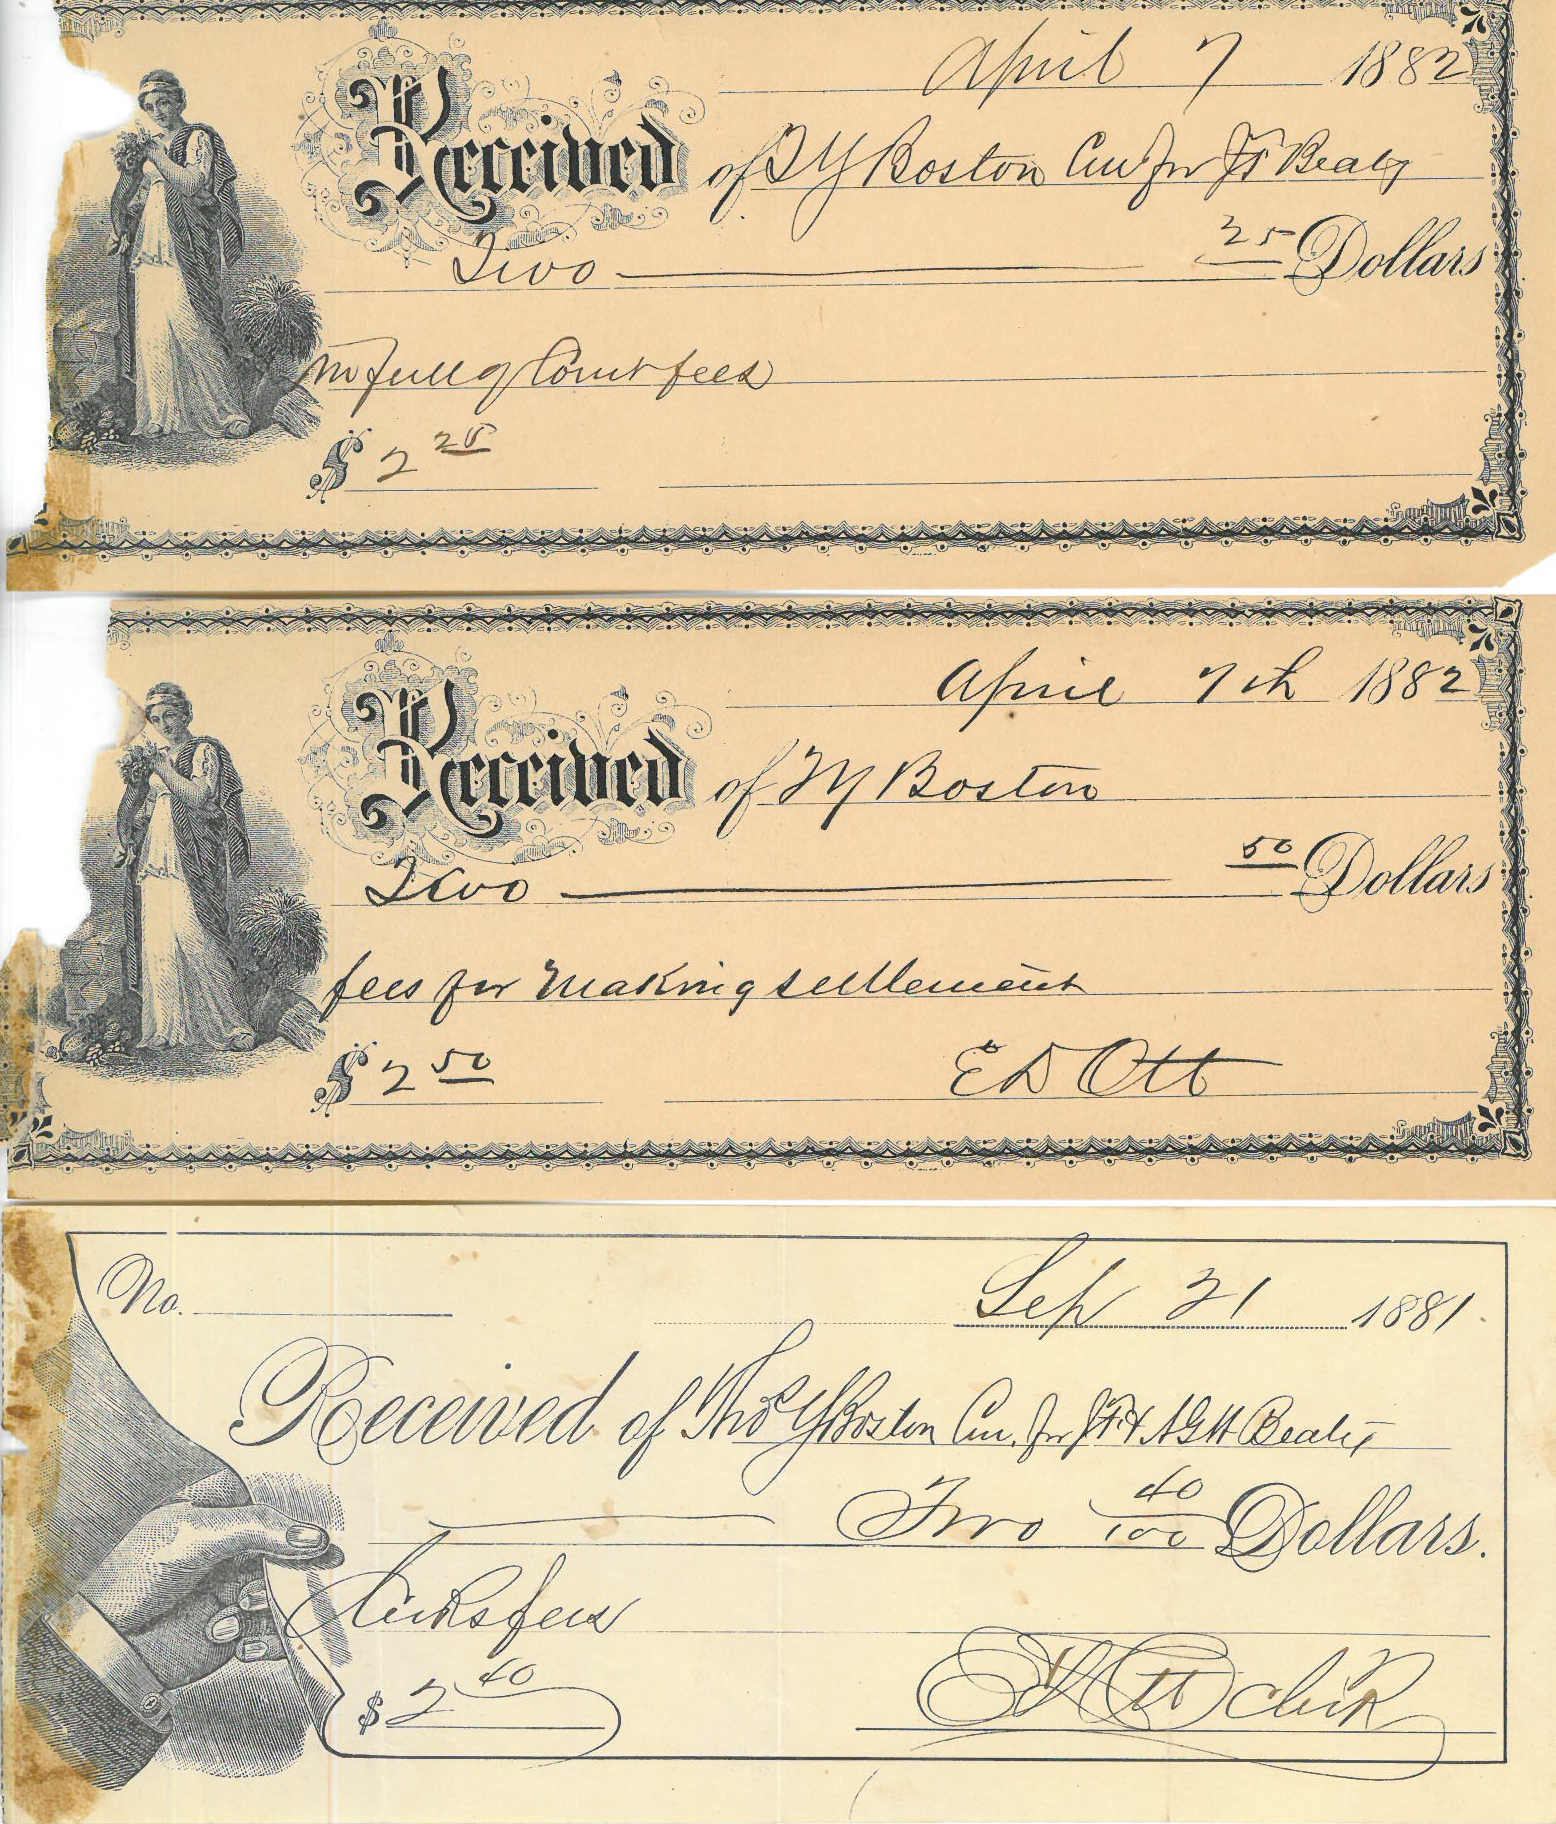 April 7 1882
Received of T Y Boston Cur for J F Beaty
Two 25 Dollars
In full of Court fees
$ 2 25
April 7th 1882
Received of T Y Boston
Two 50 Dollars
fees for making settlement
$ 2 50
E D Ott
No. Sep 21 1881
Received of Thos Y Boston Cur. for J F & A G H Beaty
Two 40/100 Dollars.
Clerks fees
$ 2 40
E D Ott clerk